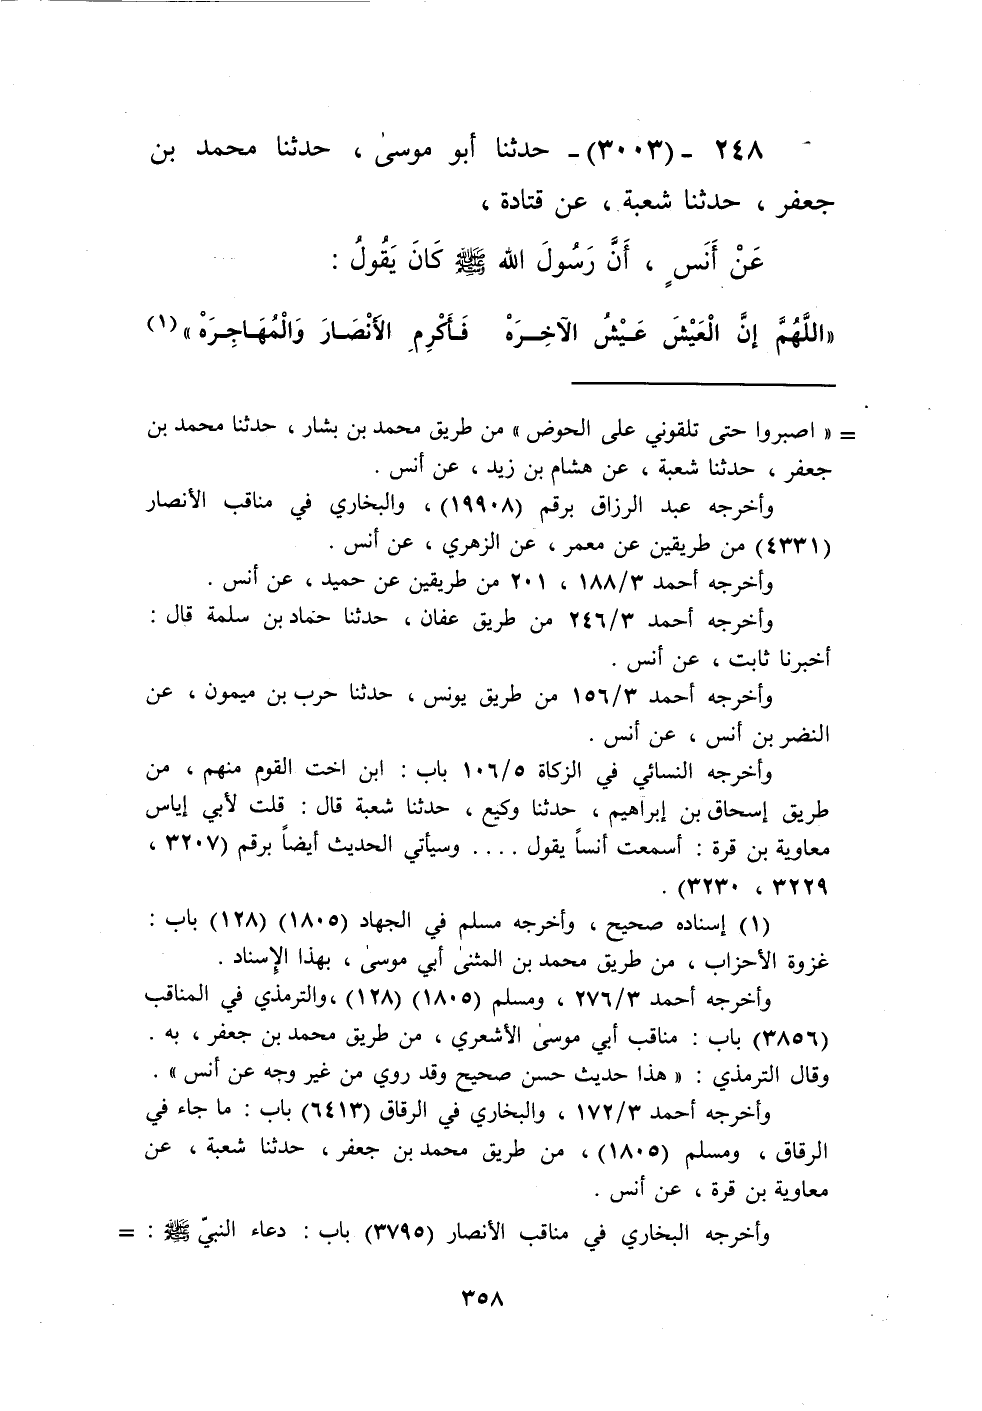 ٢٤٨ - (٣٠٠٣) - حدثنا أبو موسىٰ ، حدثنا محمد بن
جعفر ، حدثنا شعبة ، عن قتادة ،
عَنْ أَنَسٍ ، أَنَّ رَسُولَ الله ﷺ كَانَ يَقُولُ :
«اللَّهُمَّ إنَّ الْعَيْشَ عَـيْشُ الآخِـرَهْ فَـأَكْرِمِ الأَنْصَـارَ وَالْمُهَـاجِـرَهْ»(١)
= « اصبروا حتى تلقوني على الحوض » من طريق محمد بن بشار ، حدثنا محمد بن
جعفر ، حدثنا شعبة ، عن هشام بن زيد ، عن أنس .
وأخرجه عبد الرزاق برقم (١٩٩٠٨) ، والبخاري في مناقب الأنصار
(٤٣٣١) من طريقين عن معمر ، عن الزهري ، عن أنس .
وأخرجه أحمد ١٨٨/٣ ، ٢٠١ من طريقين عن حميد ، عن أنس .
وأخرجه أحمد ٢٤٦/٣ من طريق عفان ، حدثنا حماد بن سلمة قال :
أخبرنا ثابت ، عن أنس .
وأخرجه أحمد ١٥٦/٣ من طريق يونس ، حدثنا حرب بن ميمون ، عن
النضر بن أنس ، عن أنس .
وأخرجه النسائي في الزكاة ١٠٦/٥ باب : ابن اخت القوم منهم ، من
طريق إسحاق بن إبراهيم ، حدثنا وكيع ، حدثنا شعبة قال : قلت لأبي إياس
معاوية بن قرة : أسمعت أنساً يقول .... وسيأتي الحديث أيضاً برقم (٣٢٠٧ ،
٣٢٢٩ ، ٣٢٣٠) .
(١) إسناده صحيح ، وأخرجه مسلم في الجهاد (١٨٠٥) (١٢٨) باب :
غزوة الأحزاب ، من طريق محمد بن المثنىٰ أبي موسىٰ ، بهذا الإسناد .
وأخرجه أحمد ٢٧٦/٣ ، ومسلم (١٨٠٥) (١٢٨) ،والترمذي في المناقب
(٣٨٥٦) باب : مناقب أبي موسىٰ الأشعري ، من طريق محمد بن جعفر ، به .
وقال الترمذي : « هذا حديث حسن صحيح وقد روي من غير وجه عن أنس » .
وأخرجه أحمد ١٧٢/٣ ، والبخاري في الرقاق (٦٤١٣) باب : ما جاء في
الرقاق ، ومسلم (١٨٠٥) ، من طريق محمد بن جعفر ، حدثنا شعبة ، عن
معاوية بن قرة ، عن أنس .
وأخرجه البخاري في مناقب الأنصار (٣٧٩٥) باب : دعاء النبيّ ﷺ : =
٣٥٨